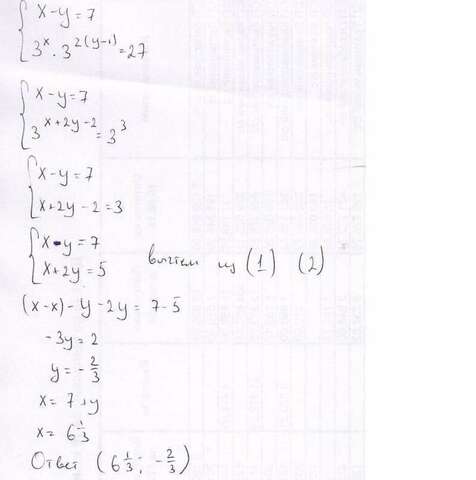 x-y=7
3^x · 3^{2(y-1)}=27
x-y=7
3^{x+2y-2}=3^3
x-y=7
x+2y-2=3
x-y=7
x+2y=5 вычтем из (1) (2)
(x-x)-y-2y=7-5
-3y=2
y=-2/3
x=7+y
x=6 1/3
Ответ (6 1/3; -2/3)